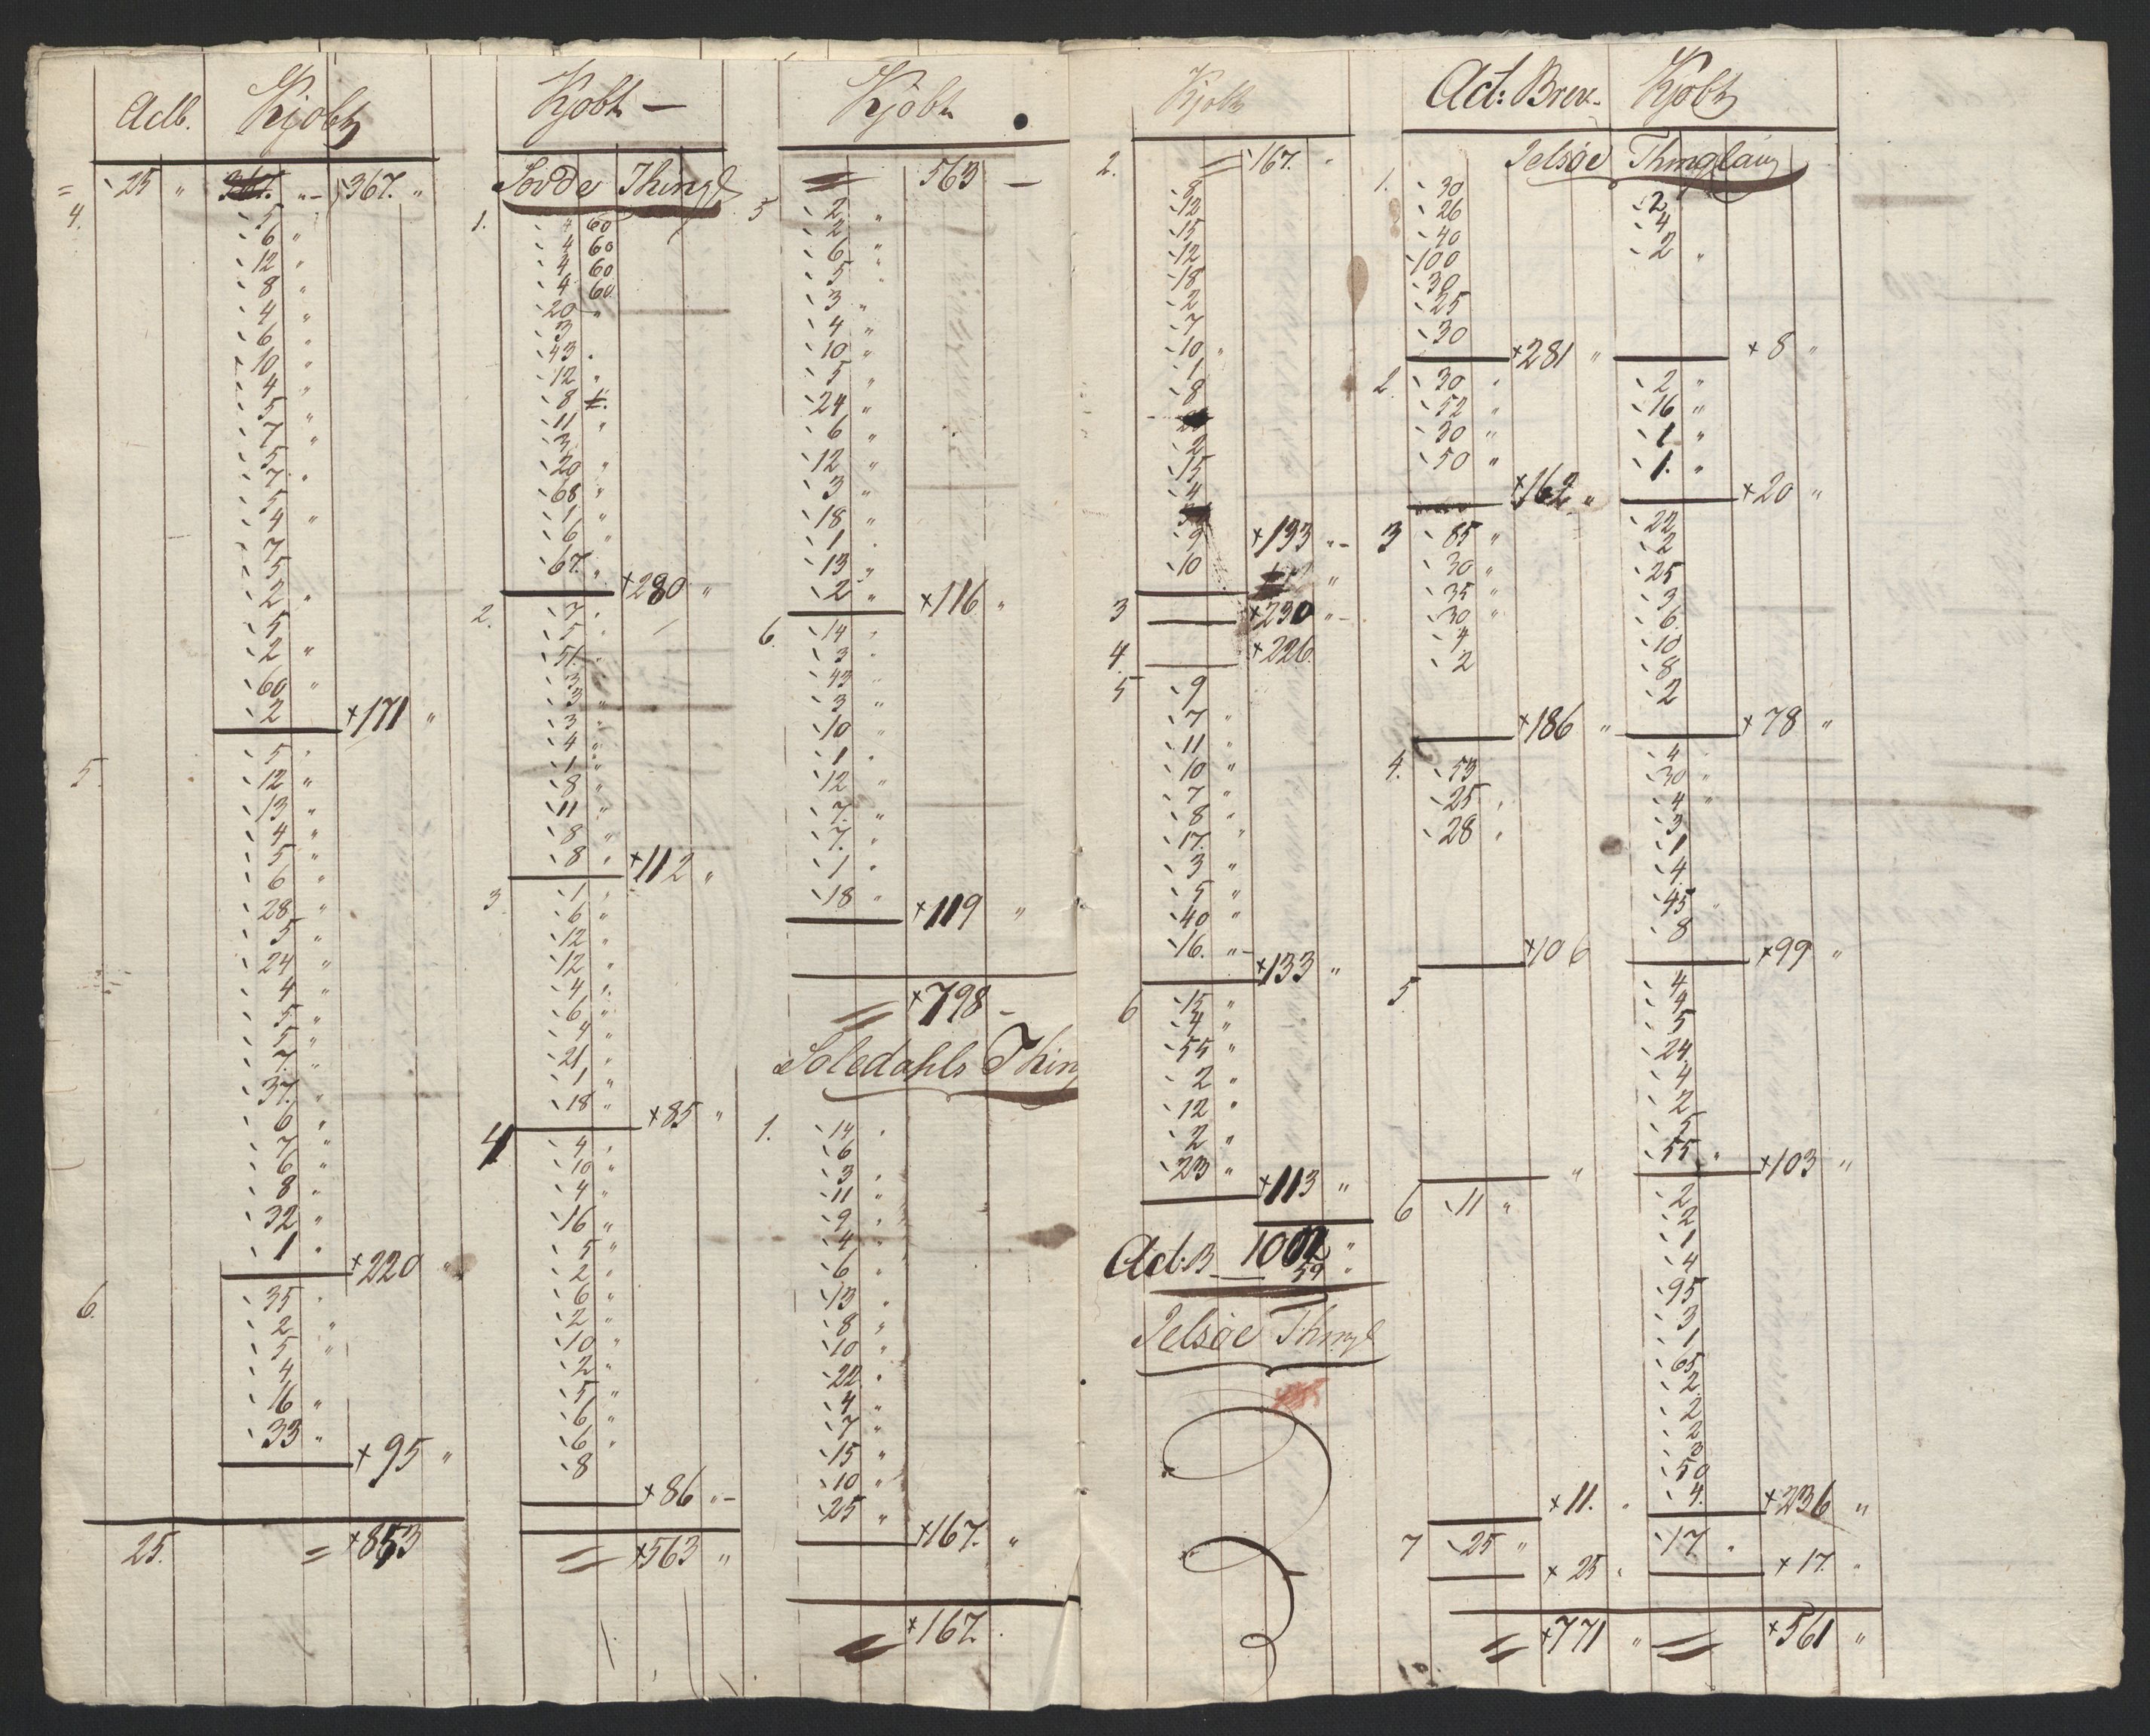 Adb. Kjøbtz
= 25 " 367. " 367. "
4. 5
6 "
12 "
8 "
4 "
6 "
10 "
4 "
5 "
7 "
5
7 "
5
4 "
7
5
2 "
5
2 "
60 "
2
+171 "
5. 5 "
12 "
13 "
4 "
5 "
6 "
28 "
5 "
24 "
4 "
5 "
5 "
7. "
37. "
6 "
7 "
6 "
8 "
32 "
1 "
+220 "
6. 35 "
2 "
5 "
4
16 "
33 "
+95 "
25. = +853
Kjøbt —
Sovde Thingl
1. 4 60
4 60
4 60
4 60
20 "
3
43 "
12 "
8
11 "
3
20 "
68 "
1 "
6 "
67. "
+280 "
2. 7 "
5 "
51. "
3
3 "
3 "
4 "
1 "
8 "
11 "
8 "
8 "
+112 "
3 1 "
6 "
12 "
12 "
4 "
6 "
4 "
21 "
1 "
18 "
+85 "
4 4 "
10 "
4 "
16 "
5 "
2 "
6 "
2 "
10 "
2 "
5 "
6 "
6 "
8
+86 " –
= +563 "
Kjøbt
= 563 —
5 2 "
2
6 "
5 "
3 "
4 "
10 "
5 "
24 "
6 "
12 "
3 "
18 "
1 "
13 "
2 "
+116 "
6. 14 "
3 "
43 "
3 "
10 "
1 "
12 "
7. "
7. "
1 "
18 "
+119 "
= +798 –
Soledahls Thin
1. 14 "
6
3 "
11 "
9 "
4 "
6 "
13 "
8 "
10 "
22 "
4 "
7 "
15 "
10 "
25 "
+167. "
= +167.
Kjøbt
2. = 167. "
8
12
15
12
18
2
7
10 "
1
8
2
15
4
9
10
+133 " –
3 — +230 " –
4. — +226.
5 9
7 "
11 "
10 "
7 "
8 "
17. "
3 "
5 "
40 "
16. " –
+133 "
6 15 "
4 "
55 "
2 "
12 "
2 "
23 "
+113 "
1002 "
Ad: B — 59 "
Jelsøe Thingl
Ad: Brev. Kjøbtz
Jelsøe Thinglaug
1. 30 2
26 4
40 2 "
100
30
25
30
+281 " +8 "
2. 30 " 2 "
52 " 16 "
30 " 1 "
50 " 1. "
+162 " +20 "
3 85 " 22
30 " 2
35 " 25
30 " 3
4 6
2 10
8
2
+186 " +78 "
4. 53 4
25 " 30 "
28 " 4 "
3
1
4.
45 "
8
+106 +99 "
5 4
4
5
24
4
2
5
55 "
" +103 "
6 11 " 2
2
1
4
95
3
1
65
2
2
2
3
50
4.
+11. " +236 "
7 25 " 17. "
+25 " +17. "
= +771 " = +561 "